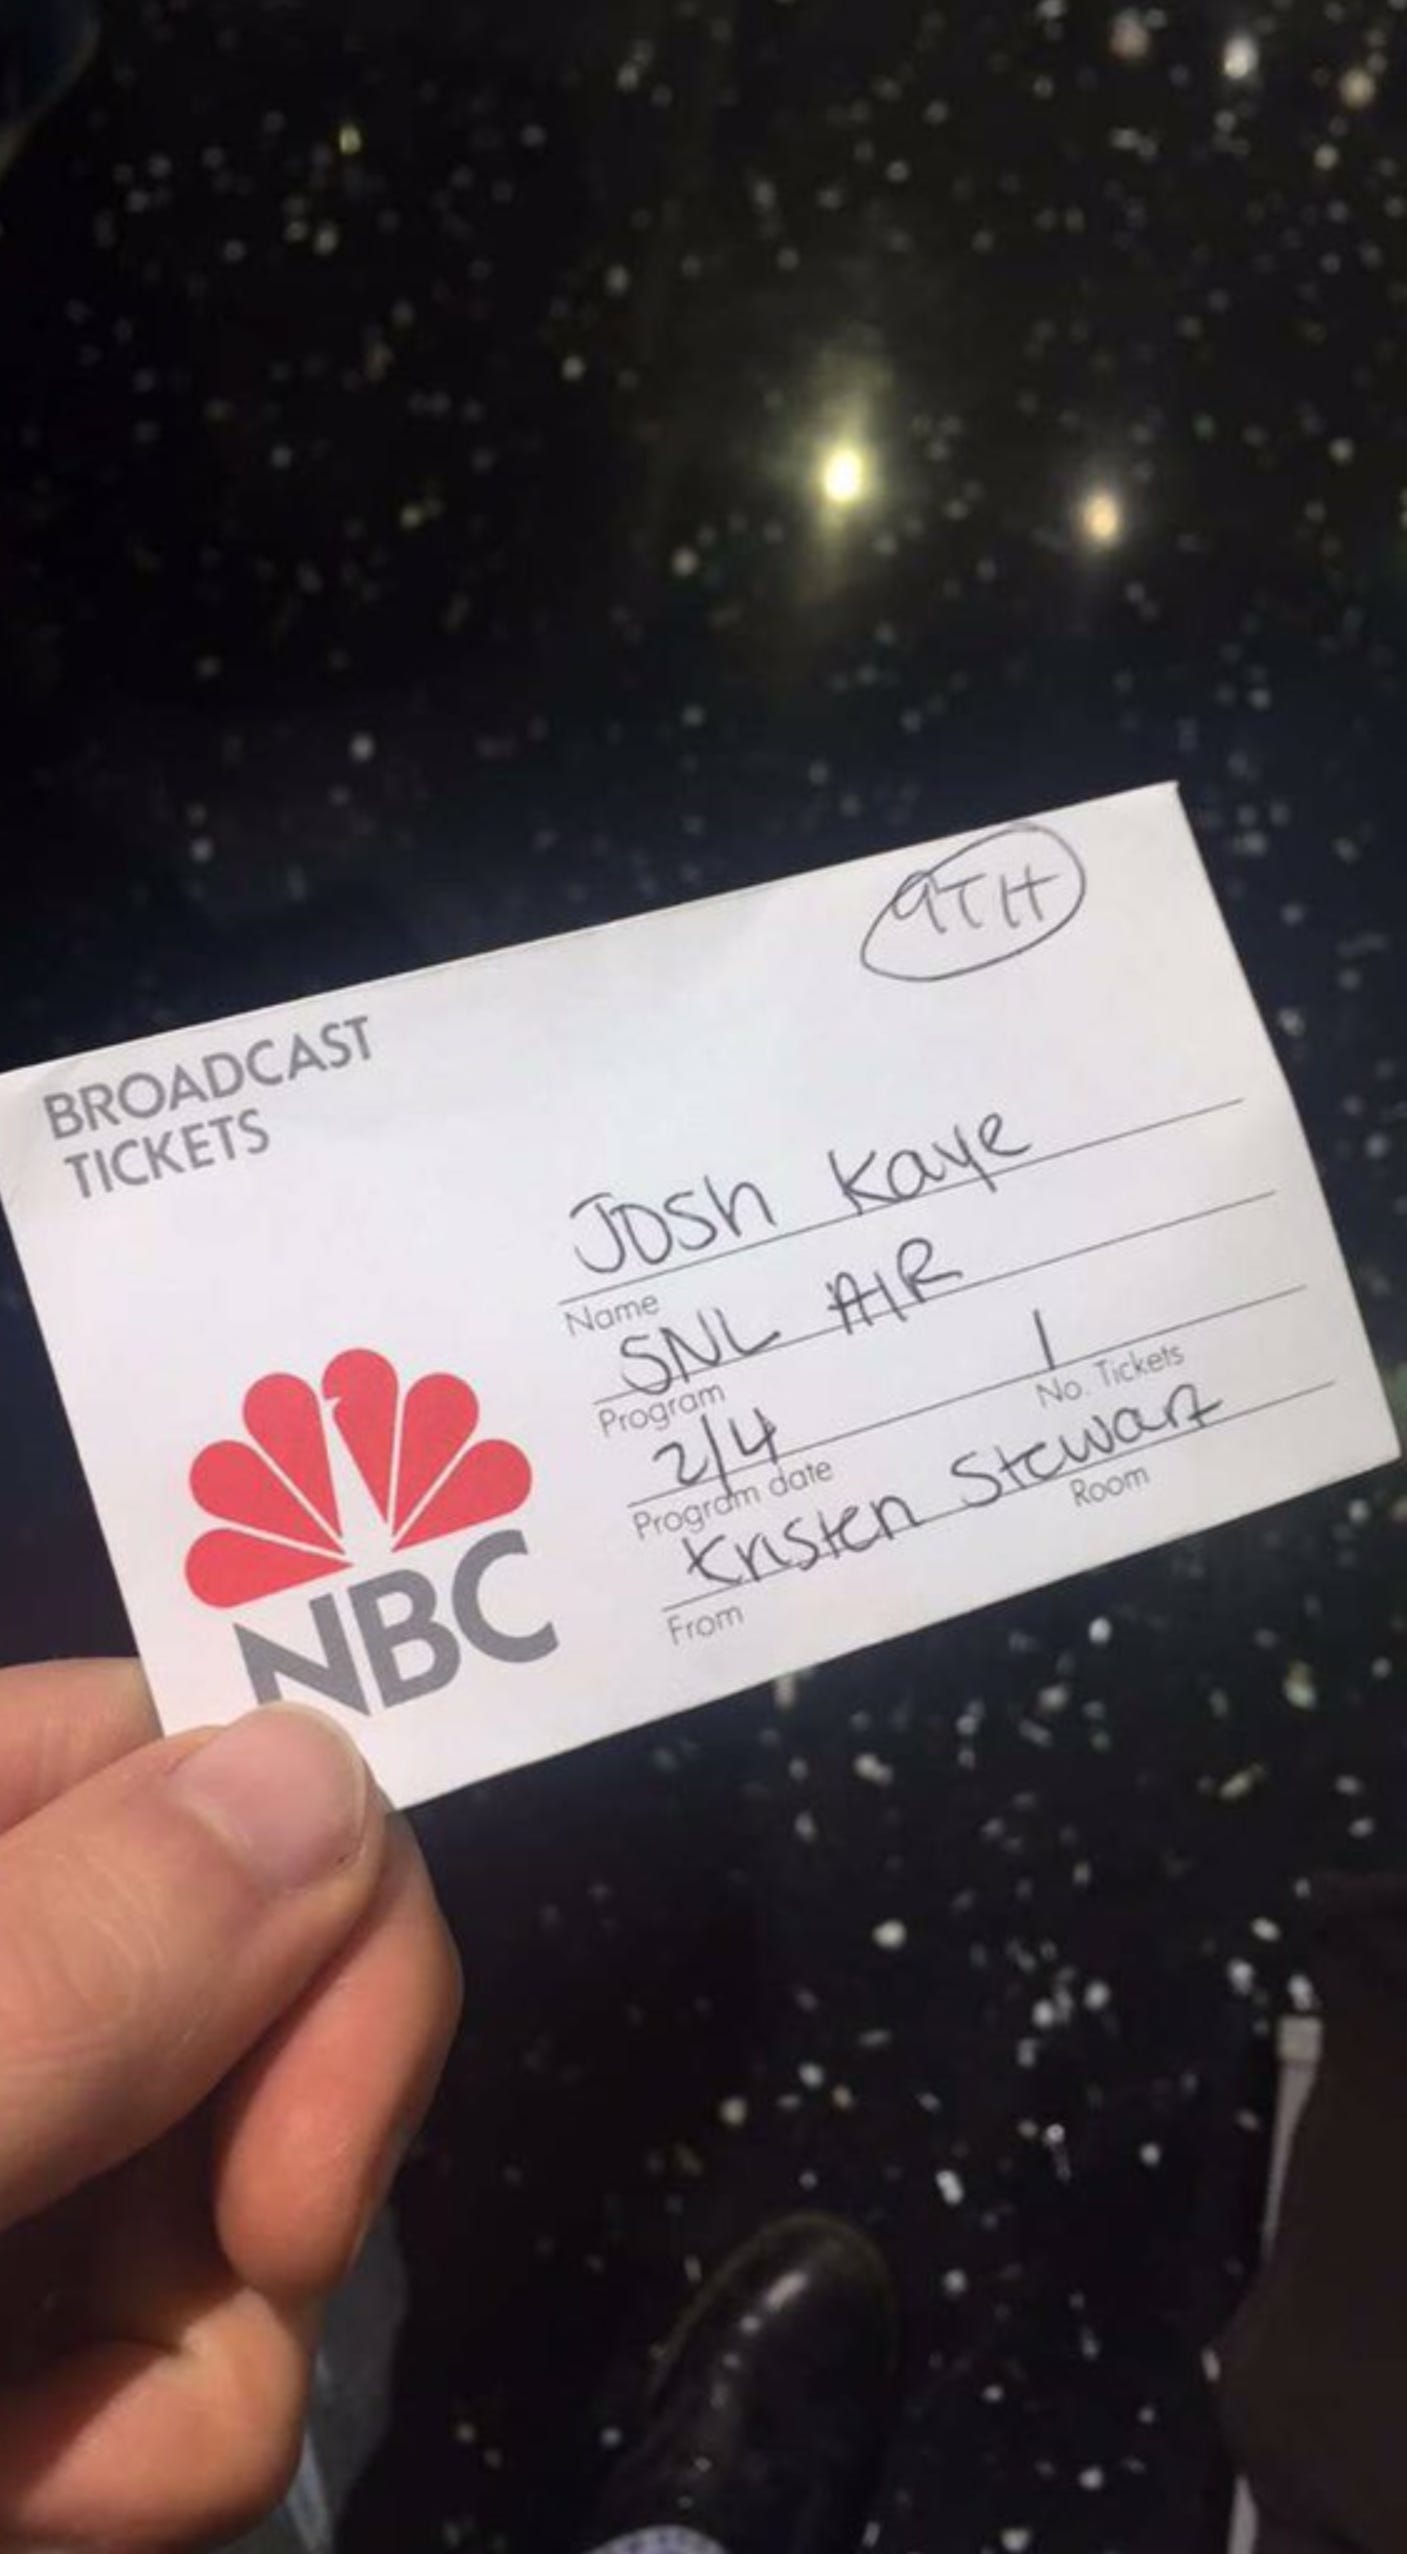 9TH
BROADCAST
TICKETS
Josh Kaye
Name
SNL AIR
Program
1
No. Tickets
2/4
Program date
Kristen Stewart
Room
From
NBC